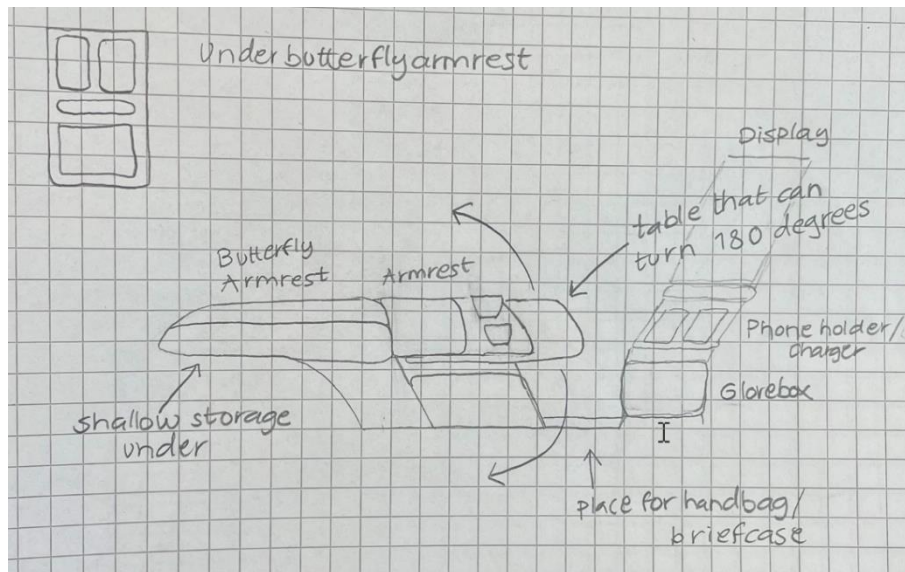 Under butterfly armrest
Display
table that can
turn 180 degrees
Butterfly
Armrest
Armrest
Phone holder/
charger
Glorebox
shallow storage
under
place for handbag/
briefcase